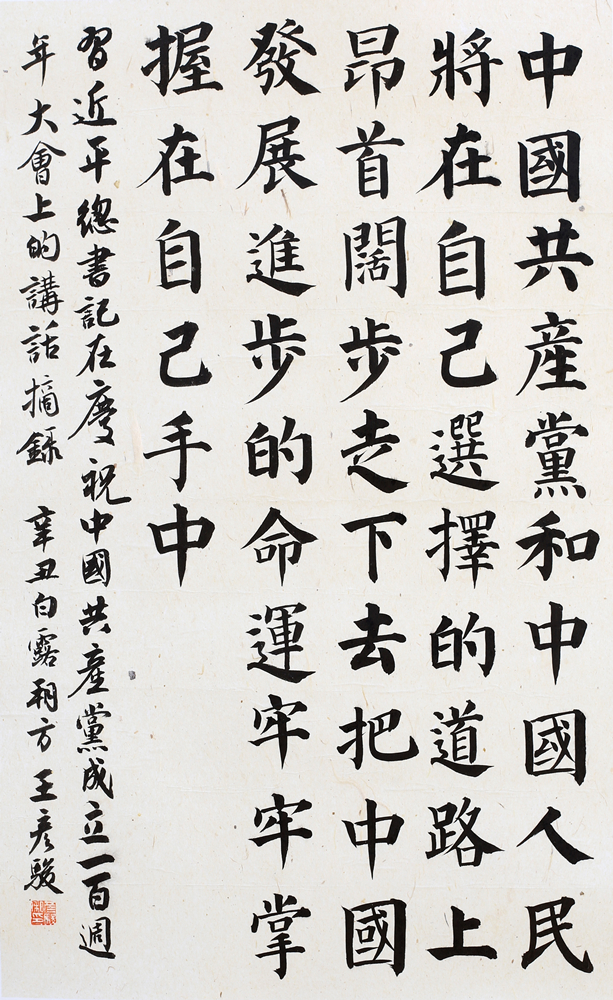 中國共産黨和中國人民
將在自己選擇的道路上
昂首闊步走下去把中國
發展進步的命運牢牢掌
握在自己手中
習近平總書記在慶祝中國共産黨成立一百週
年大會上的講話摘錄 辛丑白露朔方王彥駿